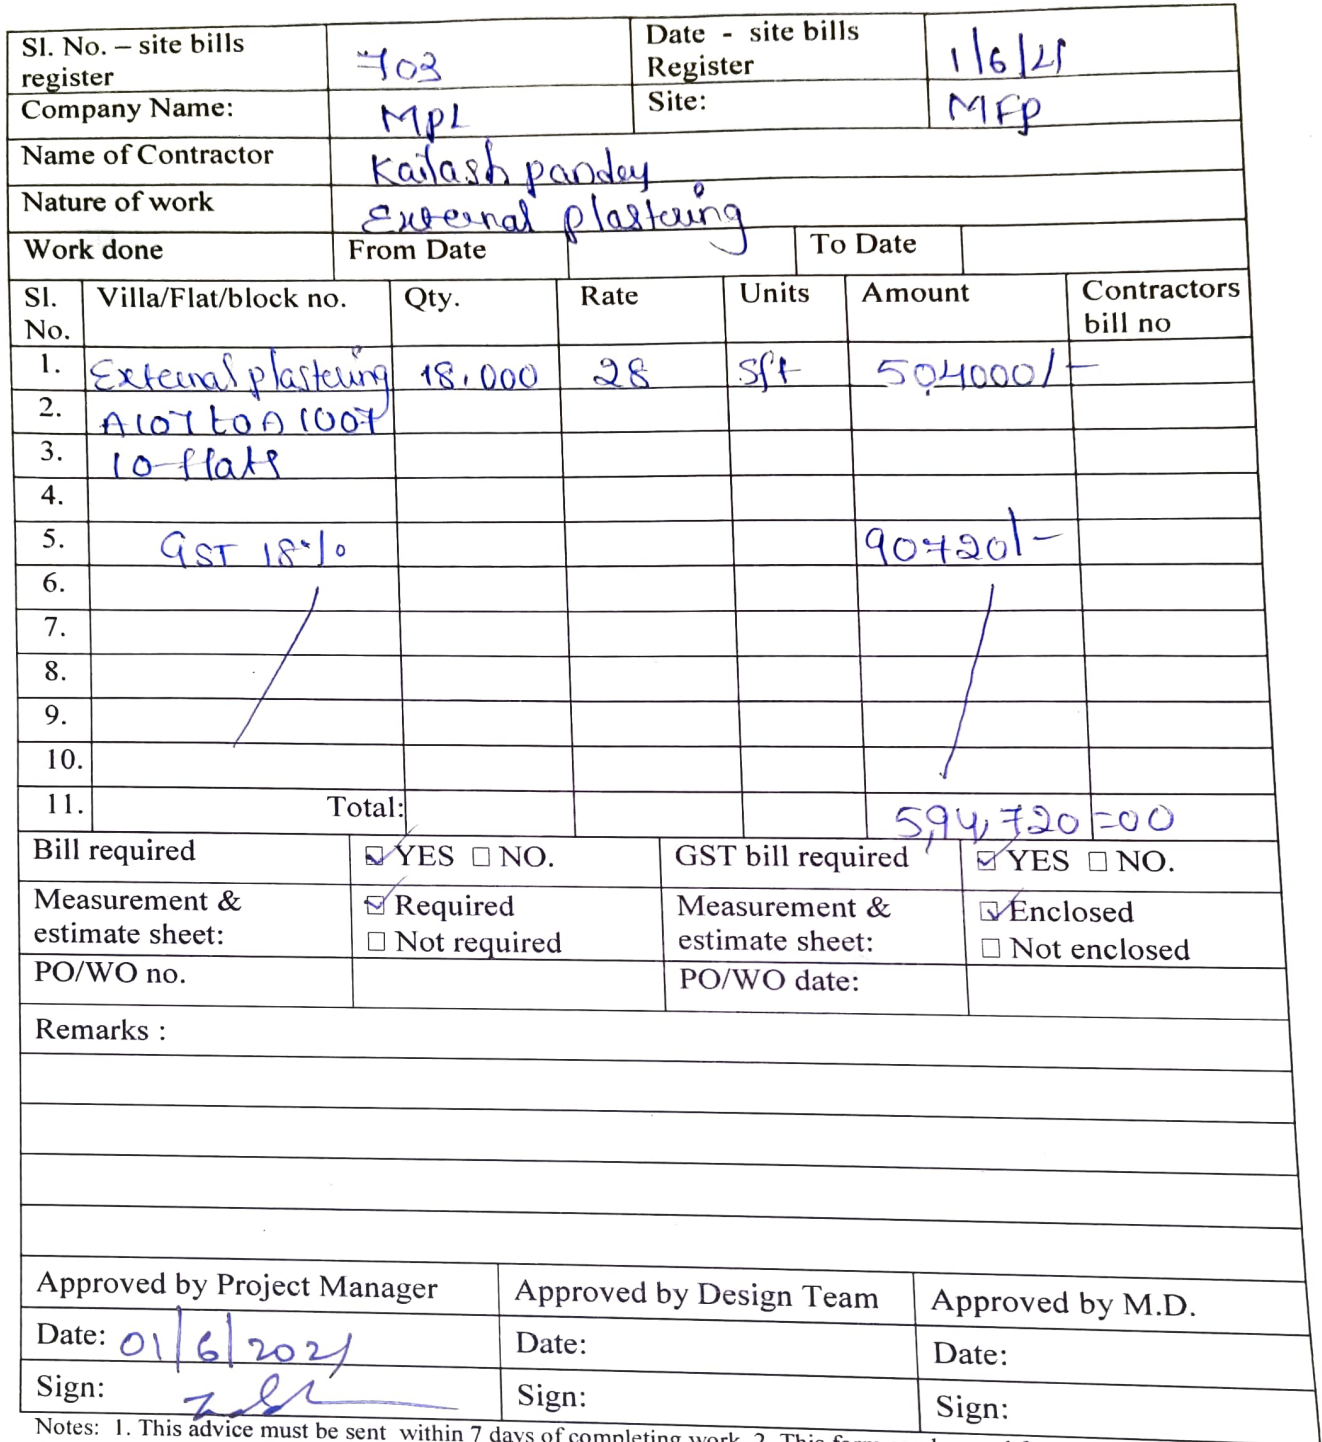 Sl. No. – site bills register 703 Date - site bills Register 1/6/21
Company Name: MPL Site: MFP
Name of Contractor Kailash pandey
Nature of work External plastering
Work done From Date To Date
Sl. No. Villa/Flat/block no. Qty. Rate Units Amount Contractors bill no
1. External plastering 18,000 28 sft 504000/-
2. A107 to A1007
3. 10-flats
4.
5. GST 18% 90720/-
6.
7.
8.
9.
10.
11. Total: 5,94,720=00
Bill required YES NO. GST bill required YES NO.
Measurement & estimate sheet: Required Not required Measurement & estimate sheet: Enclosed Not enclosed
PO/WO no. PO/WO date:
Remarks :
Approved by Project Manager Approved by Design Team Approved by M.D.
Date: 01/6/2021 Date: Date:
Sign: Sign: Sign:
Notes: 1. This advice must be sent within 7 days of completing work. 2. This